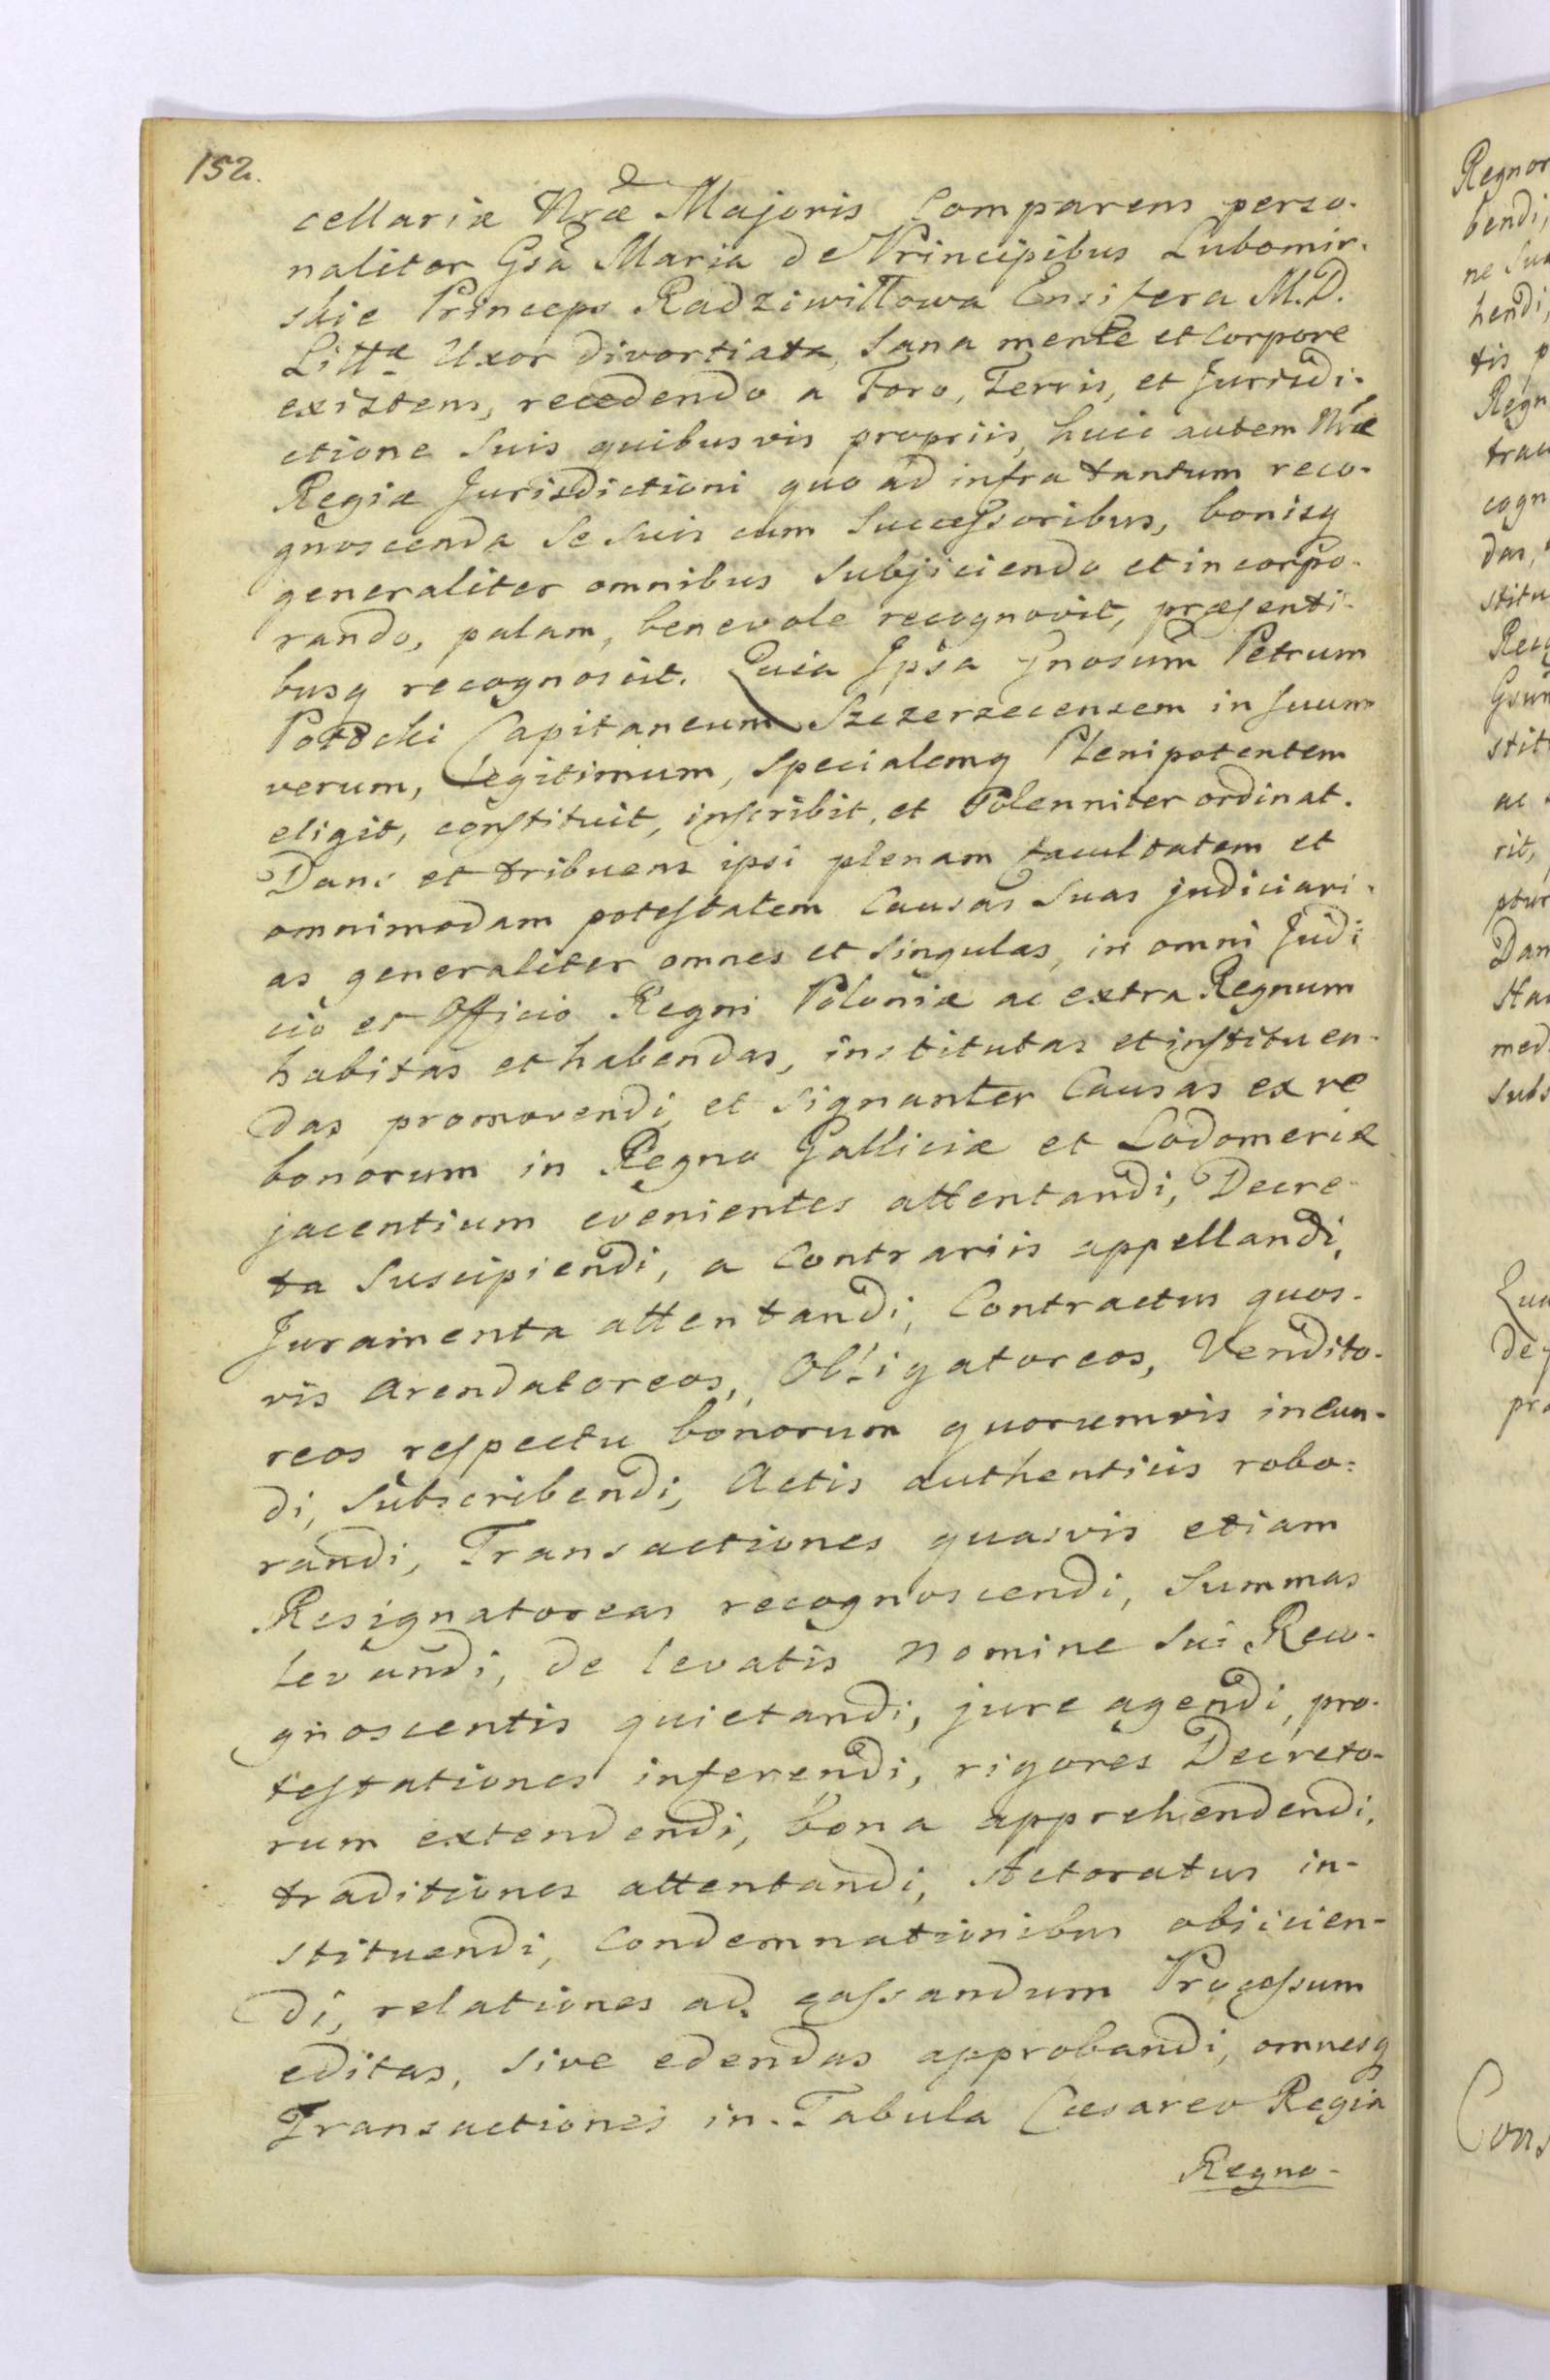 152.
cellariæ Nræ Majoris Comparens perso-
naliter Gsa Maria de Principibus Lubomir-
skie Princeps Radziwiłłowa Ensifera M.D.
Littæ Uxor divortiata, Sana mente et Corpore
existens, recedendo a Foro, Terris, et Jurisdi-
ctione Suis quibusvis propriis, huic autem Nræ
Regiæ Jurisdictioni quo ad infra tantum reco-
gnoscenda Se Suis cum Successoribus, bonisq
generaliter omnibus Subjiciendo et incorpo-
rando, palam, benevole recognovit, præsenti-
busq recognoscit. Quia Ipsa Gnosum Petrum
Potocki Capitaneum Szczerzecensem in Suum
verum, Legitimum, Specialemq Plenipotentem
eligit, constituit, inscribit, et Solenniter ordinat.
Dans et tribuens ipsi plenam facultatem et
omnimodam potestatem Causas Suas judiciari-
as generaliter omnes et Singulas, in omni Judi
cio et Officio Regni Poloniæ ac extra Regnum
habitas et habendas, institutas et instituen-
das promovendi, et Signanter Causas ex re
bonorum in Regno Galliciæ et Lodomeriæ
jacentium evenientes attentandi, Decre-
ta Suscipiendi, a Contrariis appellandi,
Juramenta attentandi, Contractus quos-
vis Arendatoreos, Obligatoreos, Vendito-
reos respectu bonorum quorumvis ineun-
di, Subscribendi, Actis authenticis robo-
randi, Transactiones quasvis etiam
Resignatoreas recognoscendi, Summas
levandi, de levatis Nomine Sui Reco-
gnoscentis quietandi, jure agendi, pro-
testationes inferendi, rigores Decreto-
rum extendendi, bona apprehendendi,
traditiones attentandi, Actoratus in-
stituendi, Condemnationibus obiicien-
di, relationes ad cassandum Processum
editas, Sive edendas approbandi, omnesq
Transactiones in Tabula Cæsareo Regia
Regno-